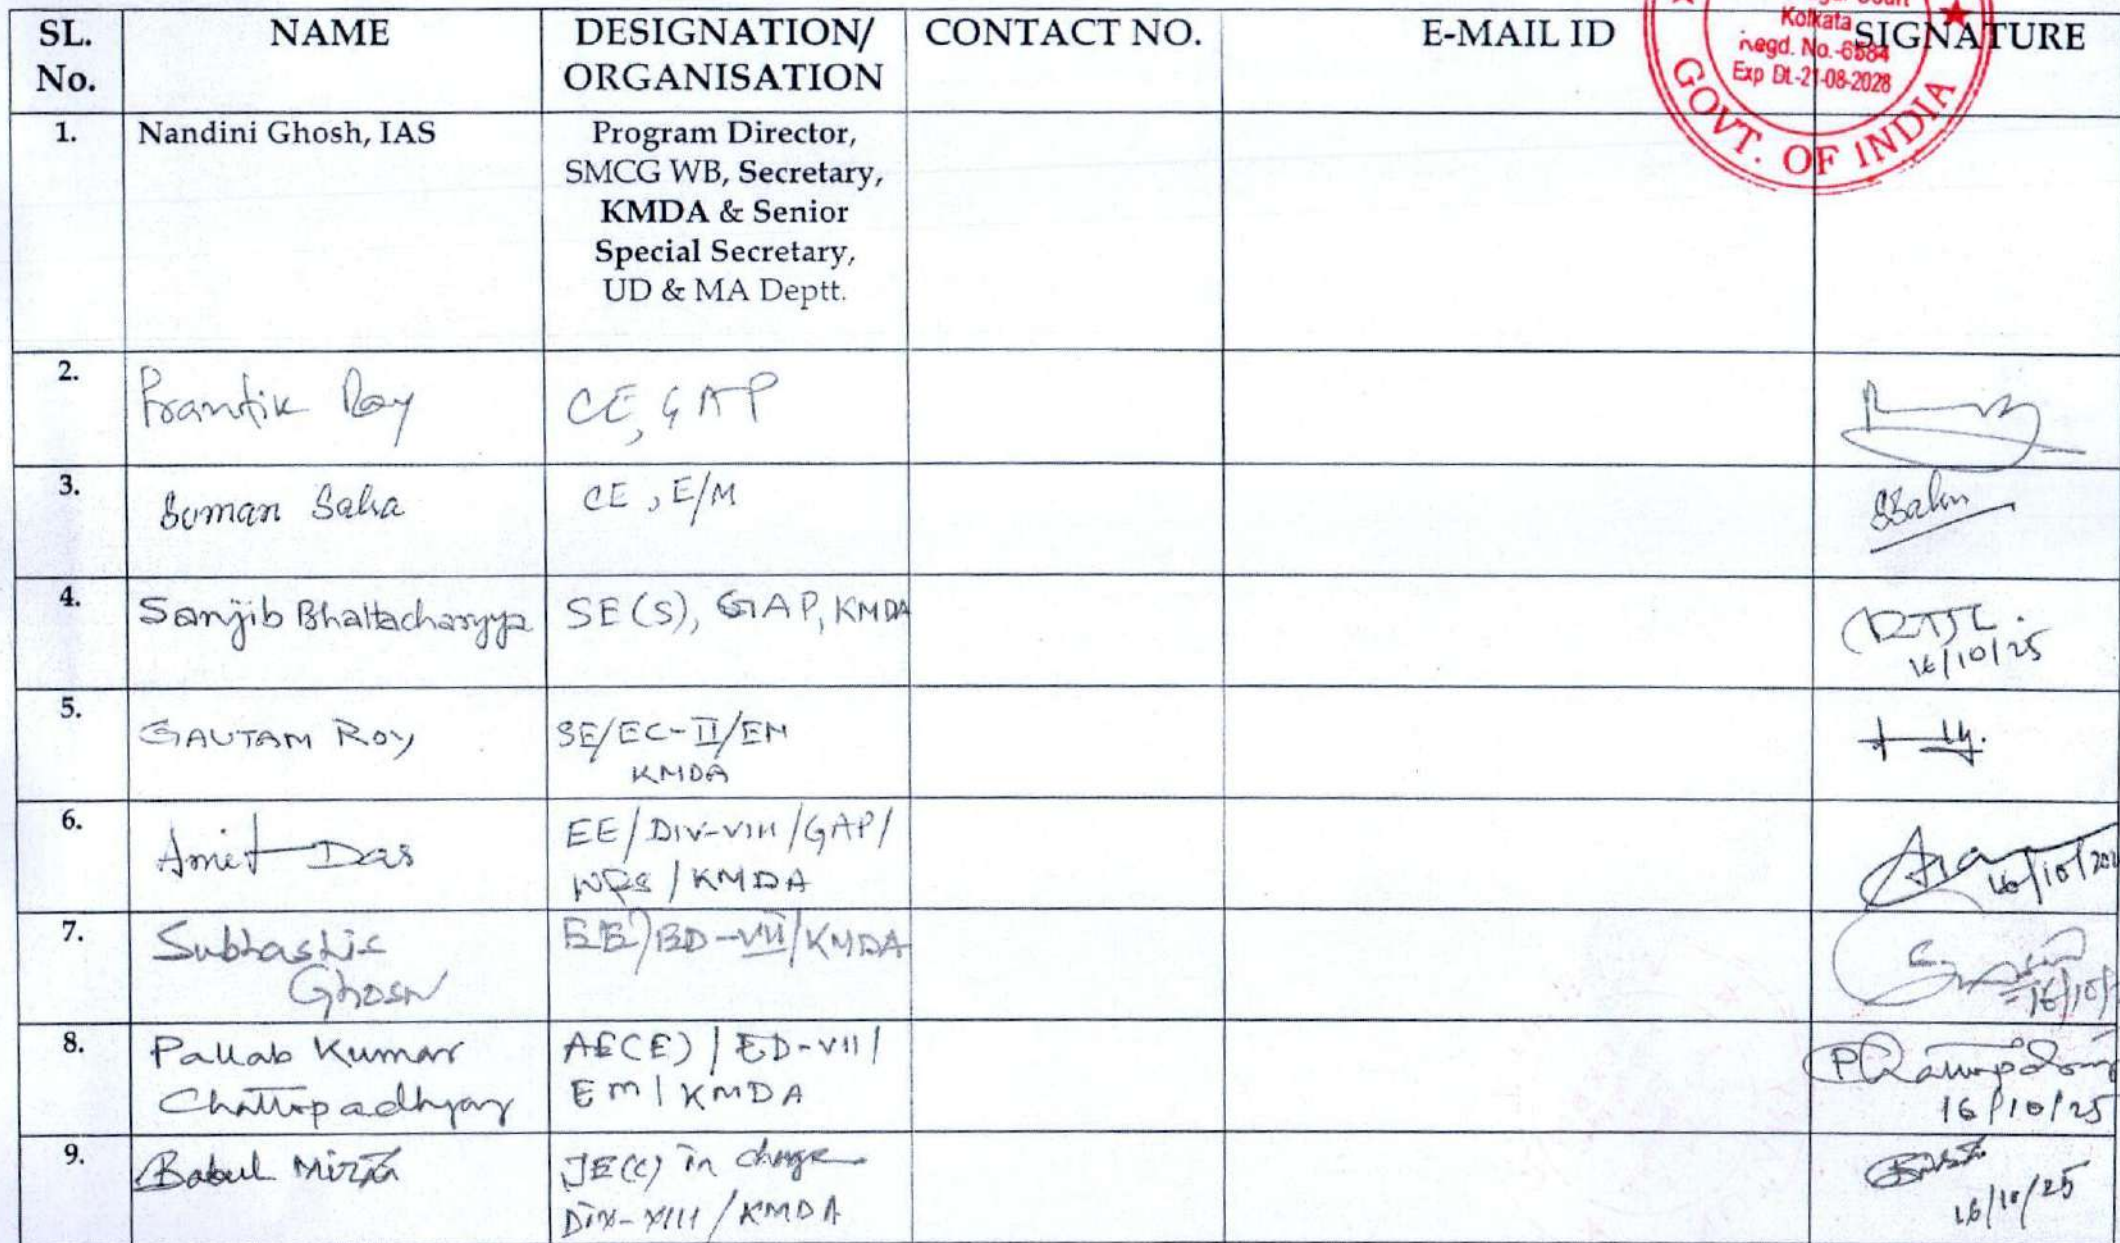 SL. No.
NAME
DESIGNATION/ ORGANISATION
CONTACT NO.
E-MAIL ID
SIGNATURE
Kolkata
Regd. No.-6584
Exp Dt.-21-08-2028
GOVT. OF INDIA
1.
Nandini Ghosh, IAS
Program Director,
SMCG WB, Secretary,
KMDA & Senior
Special Secretary,
UD & MA Deptt.
2.
Prantik Roy
CE, GAP
3.
Suman Saha
CE, E/M
SSaha
4.
Sanjib Bhattacharyya
SE(S), GAP, KMDA
16/10/25
5.
GAUTAM ROY
SE/EC-II/EM
KMDA
6.
Amit Das
EE/DIV-VIII/GAP/
WRS/KMDA
16/10/202
7.
Subhashis
Ghosh
EE/BD-VII/KMDA
16/10/
8.
Pallab Kumar
Chattopadhyay
AE(E)/ED-VII/
EM/KMDA
PChattopadhyay
16/10/25
9.
Babul Mirza
JE(C) in charge
Div-XIII/KMDA
16/10/25